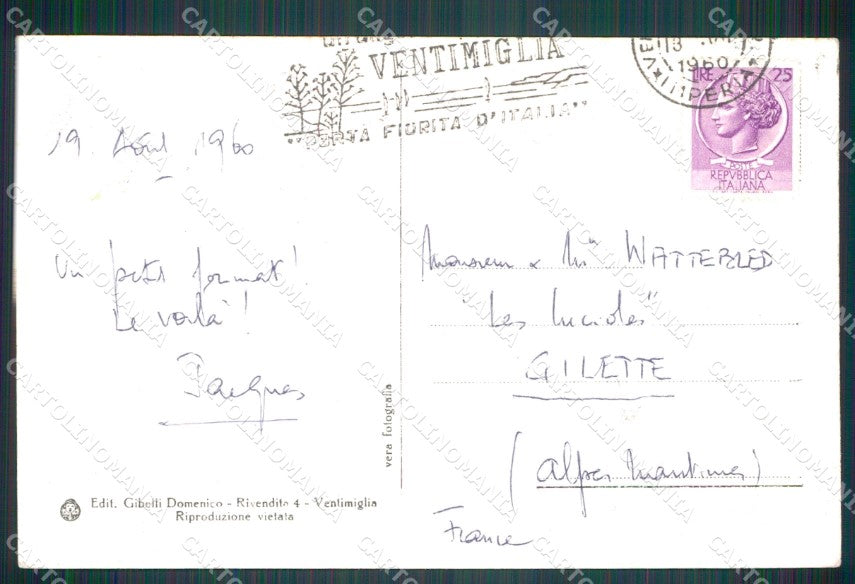 VENTIMIGLIA
"PORTA FIORITA D'ITALIA"
13
1960
IMPERIA
LIRE 25
POSTE
REPVBBLICA
ITALIANA
19 Août 1960
Un petit format!
Le voilà!
Jacques
Monsieur & Mme WATTEBLED
"Les Lucioles"
GILETTE
(Alpes Maritimes)
France
vera fotografia
Edit. Gibelli Domenico - Rivendita 4 - Ventimiglia
Riproduzione vietata
CARTOLINOMANIA